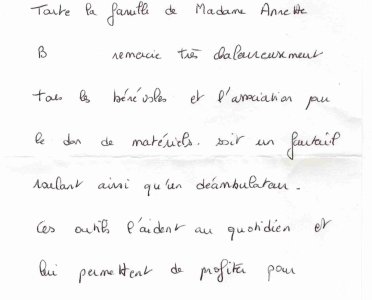 Toute la famille de Madame Annette
B remercie très chaleureusement
tous les bénévoles et l'association pour
le don de matériels. soit un fauteuil
roulant ainsi qu'un déambulateur.
Ces outils l'aident au quotidien et
lui permettent de profiter pour